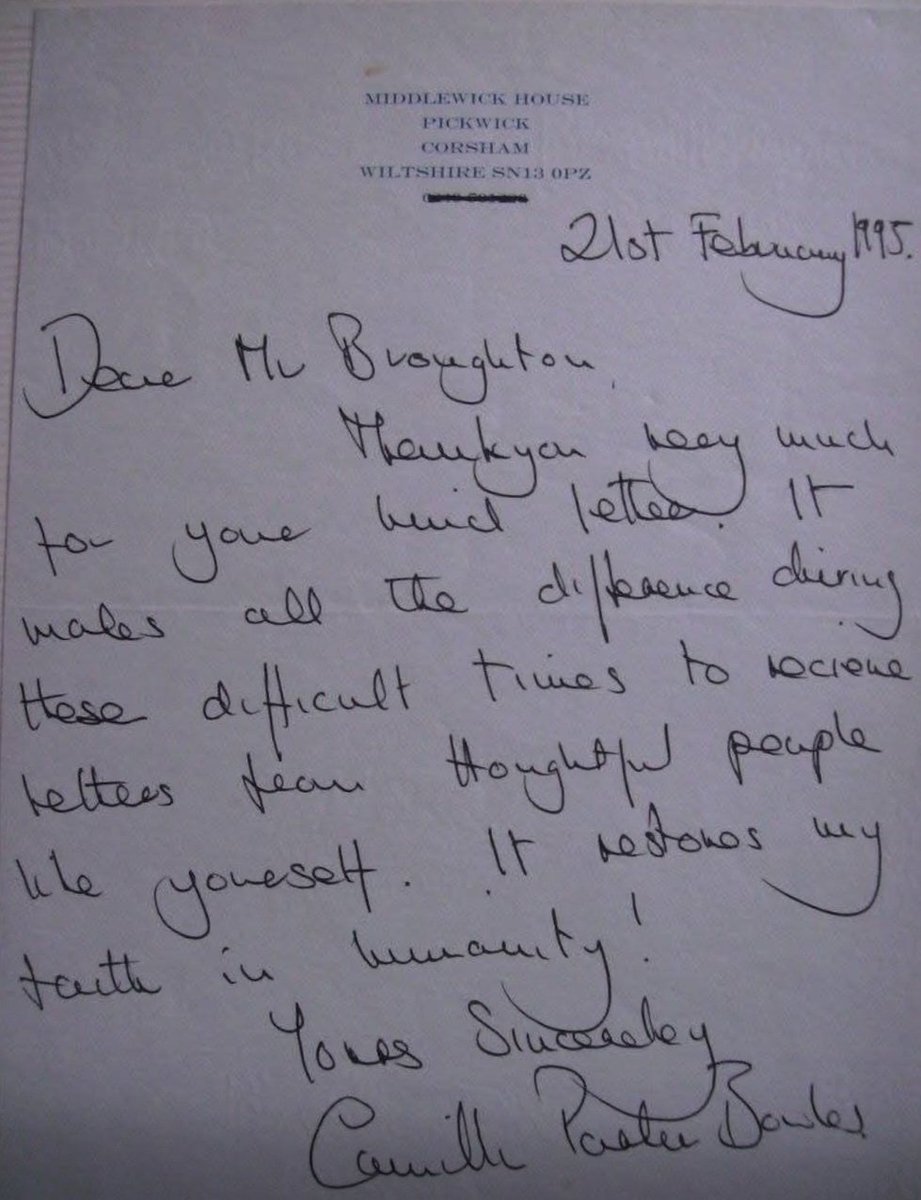 MIDDLEWICK HOUSE
PICKWICK
CORSHAM
WILTSHIRE SN13 0PZ
21st February 1995.
Dear Mr Broughton,
Thankyou very much
for your kind letter. It
makes all the difference during
these difficult times to recieve
letters from thoughtful people
like yourself. It restores my
faith in humanity!
Yours Sincerely
Camilla Parker Bowles